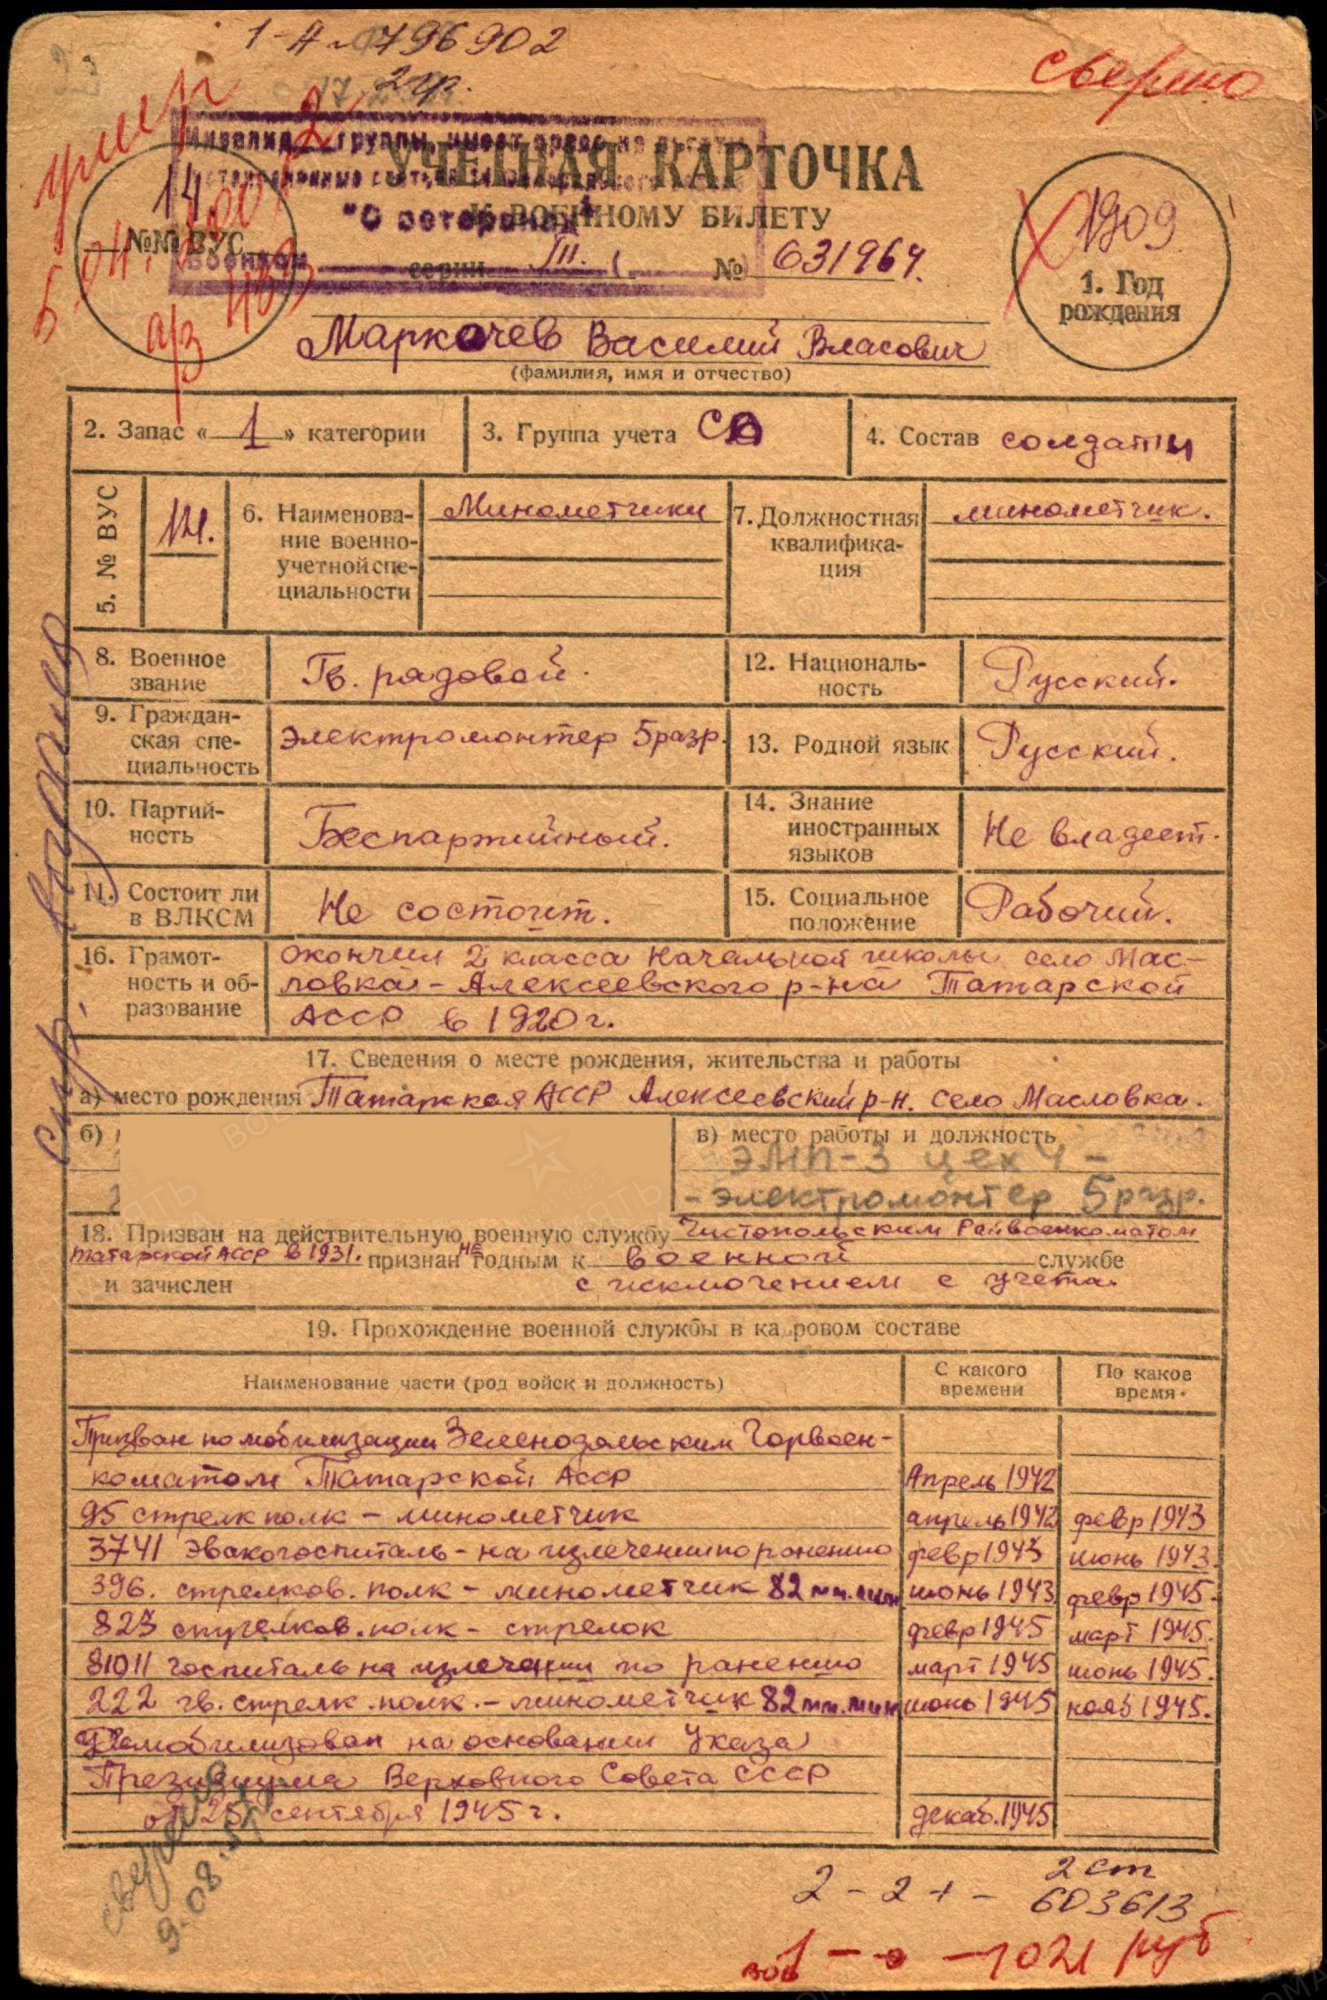 1-А № 796902
2 гр.
сверено
умер
5.04.2001
аз 483
Инвалид 2 группы, имеет право на льготы
установленные статьей 14 Федерального
"О ветеранах"
Военком
УЧЕТНАЯ КАРТОЧКА
К ВОЕННОМУ БИЛЕТУ
14
№№ ВУС
серии III. ( ) № 631964.
1909
1. Год
рождения
Маркачев Василий Власович
(фамилия, имя и отчество)
2. Запас « 1 » категории
3. Группа учета СА
4. Состав солдаты
5. № ВУС
14.
6. Наименова-
ние военно-
учетной спе-
циальности
Минометчики
7. Должностная
квалифика-
ция
минометчик.
8. Военное
звание
Гв. рядовой.
12. Националь-
ность
Русский.
9. Граждан-
ская спе-
циальность
Электромонтер 5 разр.
13. Родной язык
Русский.
10. Партий-
ность
Беспартийный.
14. Знание
иностранных
языков
Не владеет.
11. Состоит ли
в ВЛКСМ
Не состоит.
15. Социальное
положение
Рабочий.
16. Грамот-
ность и об-
разование
окончил 2 класса начальной школы село Мас-
ловка - Алексеевского р-на Татарской
АССР в 1920 г.
17. Сведения о месте рождения, жительства и работы
а) место рождения Татарская АССР Алексеевский р-н. село Масловка.
б)
в) место работы и должность
ЭМП-3 цех 4 -
- электромонтер 5 разр.
18. Призван на действительную военную службу Чистопольским Райвоенкоматом
Татарской АССР в 1931. признан не годным к военной службе
и зачислен с исключением с учета.
19. Прохождение военной службы в кадровом составе
Наименование части (род войск и должность)
С какого
времени
По какое
время
Призван по мобилизации Зеленодольским Горвоен-
коматом Татарской АССР Апрель 1942
95 стрелк полк - минометчик апрель 1942 февр 1943
3741 эвакогоспиталь - на излечении по ранению февр 1943 июнь 1943.
396. стрелков. полк - минометчик 82 мм. мин июнь 1943 февр 1945.
823 стрелков. полк - стрелок февр 1945 март 1945.
81011 госпиталь на излечении по ранению март 1945 июнь 1945.
222 гв. стрелк. полк. - минометчик 82 мм. мин июнь 1945 нояб 1945.
Демобилизован на основании Указа
Президиума Верховного Совета СССР
от 25 сентября 1945 г. декаб. 1945
сверено
9.08.
2 - 2 + - 2 ст
603613
вов 1 - 0 - 1021 руб